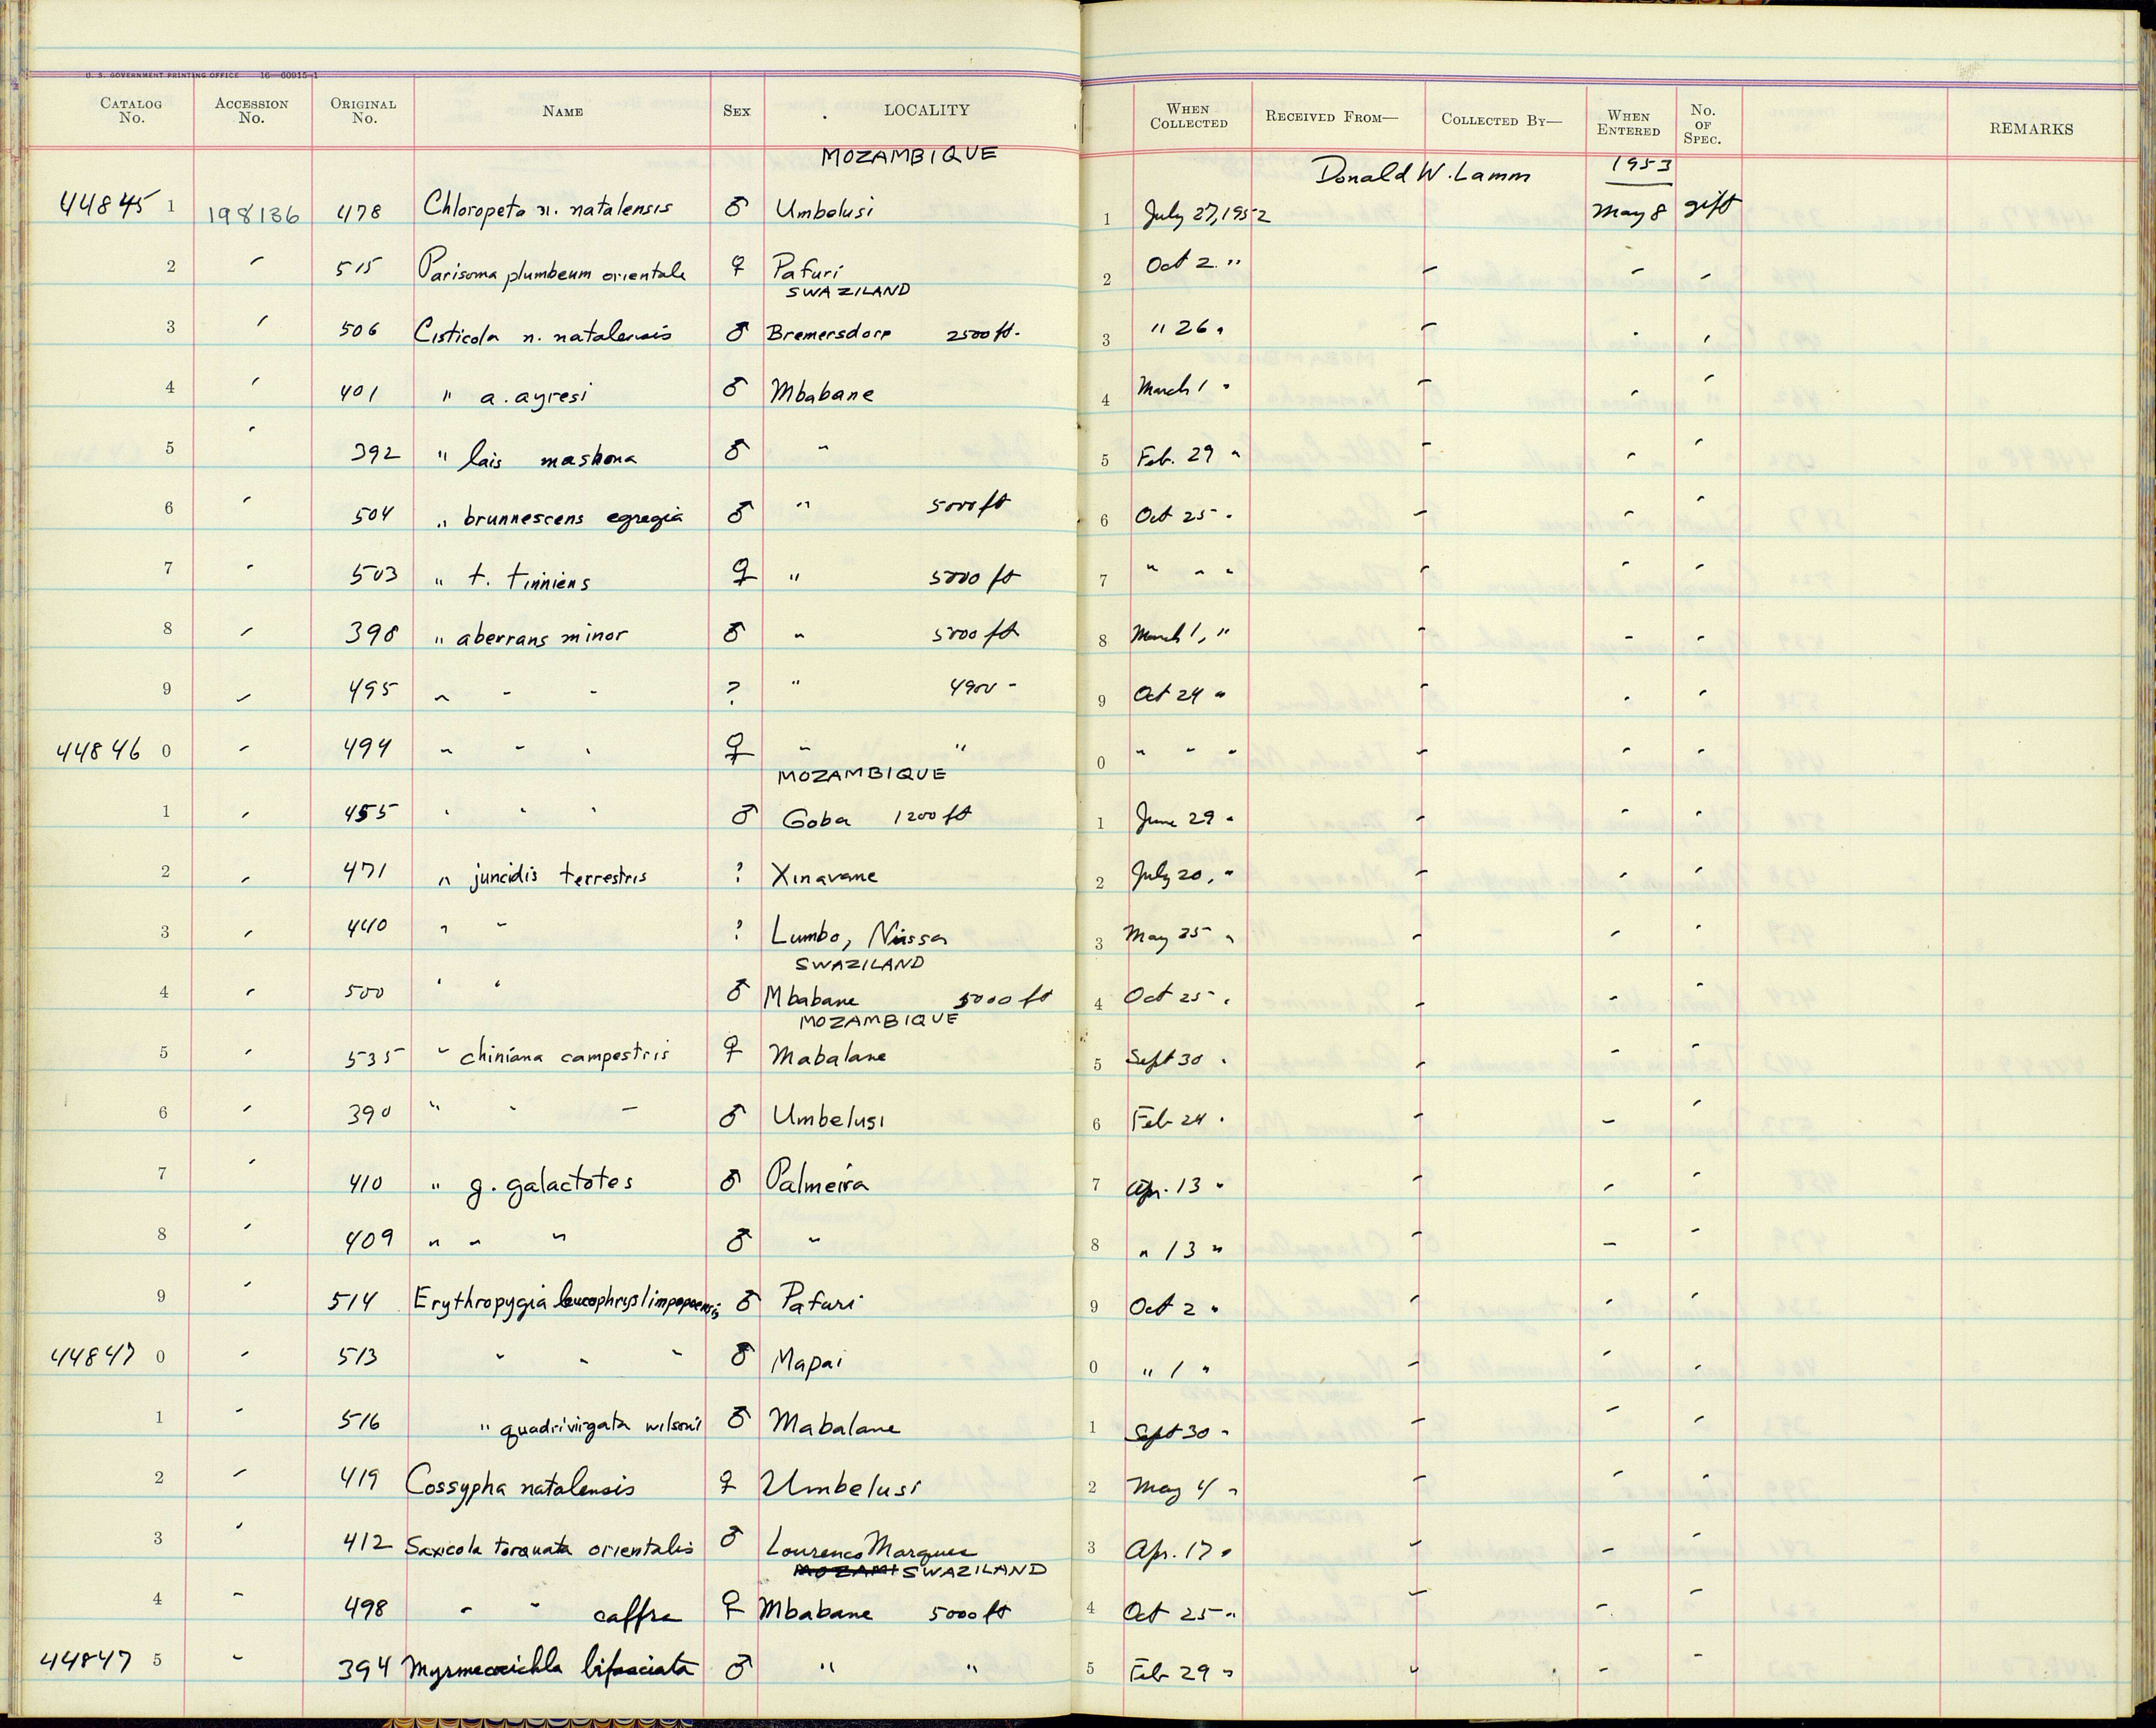 U. S. GOVERNMENT PRINTING OFFICE 16—60915-1
CATALOG No. ACCESSION No. ORIGINAL No. NAME SEX LOCALITY WHEN COLLECTED RECEIVED FROM— COLLECTED BY— WHEN ENTERED No. OF SPEC. REMARKS
MOZAMBIQUE Donald W. Lamm 1953
44845 1 198136 478 Chloropeta n. natalensis ♂ Umbelusi 1 July 27, 1952 May 8 gift
2 " 515 Parisoma plumbeum orientale ♀ Pafuri 2 Oct 2 " " " "
SWAZILAND
3 " 506 Cisticola n. natalensis ♂ Bremersdorp 2500 ft. 3 " 26 " " " "
4 " 401 " a. ayresi ♂ Mbabane 4 March 1 " " " "
5 " 392 " lais mashona ♂ " 5 Feb. 29 " " " "
6 " 504 " brunnescens egregia ♂ " 5000 ft 6 Oct 25 " " " "
7 " 503 " t. tinniens ♀ " 5000 ft 7 " " " " " "
8 " 398 " aberrans minor ♂ " 5000 ft 8 March 1, " " " "
9 " 495 " " " ? " 4900 " 9 Oct 24 " " " "
44846 0 " 494 " " " ♀ " " 0 " " " " " "
MOZAMBIQUE
1 " 455 " " " ♂ Goba 1200 ft 1 June 29 " " " "
2 " 471 " juncidis terrestris ? Xinavane 2 July 20, " " " "
3 " 440 " " ? Lumbo, Niassa 3 May 25 " " " "
SWAZILAND
4 " 500 " " ♂ Mbabane 5000 ft 4 Oct 25 " " " "
MOZAMBIQUE
5 " 535 " chiniana campestris ♀ Mabalane 5 Sept 30 " " " "
6 " 390 " " " ♂ Umbelusi 6 Feb 24 " " " "
7 " 410 " g. galactotes ♂ Palmeira 7 Apr. 13 " " " "
8 " 409 " " " ♂ " 8 " 13 " " " "
9 " 514 Erythropygia leucophrys limpopoensis ♂ Pafuri 9 Oct 2 " " " "
44847 0 " 513 " " " ♂ Mapai 0 " 1 " " " "
1 " 516 " quadrivirgata wilsoni ♂ Mabalane 1 Sept 30 " " " "
2 " 419 Cossypha natalensis ♀ Umbelusi 2 May 4 " " " "
3 " 412 Saxicola torquata orientalis ♂ Lourenco Marques 3 Apr. 17 " " " "
MOZAMI SWAZILAND
4 " 498 " " caffra ♀ Mbabane 5000 ft 4 Oct 25 " " " "
44847 5 " 394 Myrmecocichla bifasciata ♂ " " 5 Feb 29 " " " "